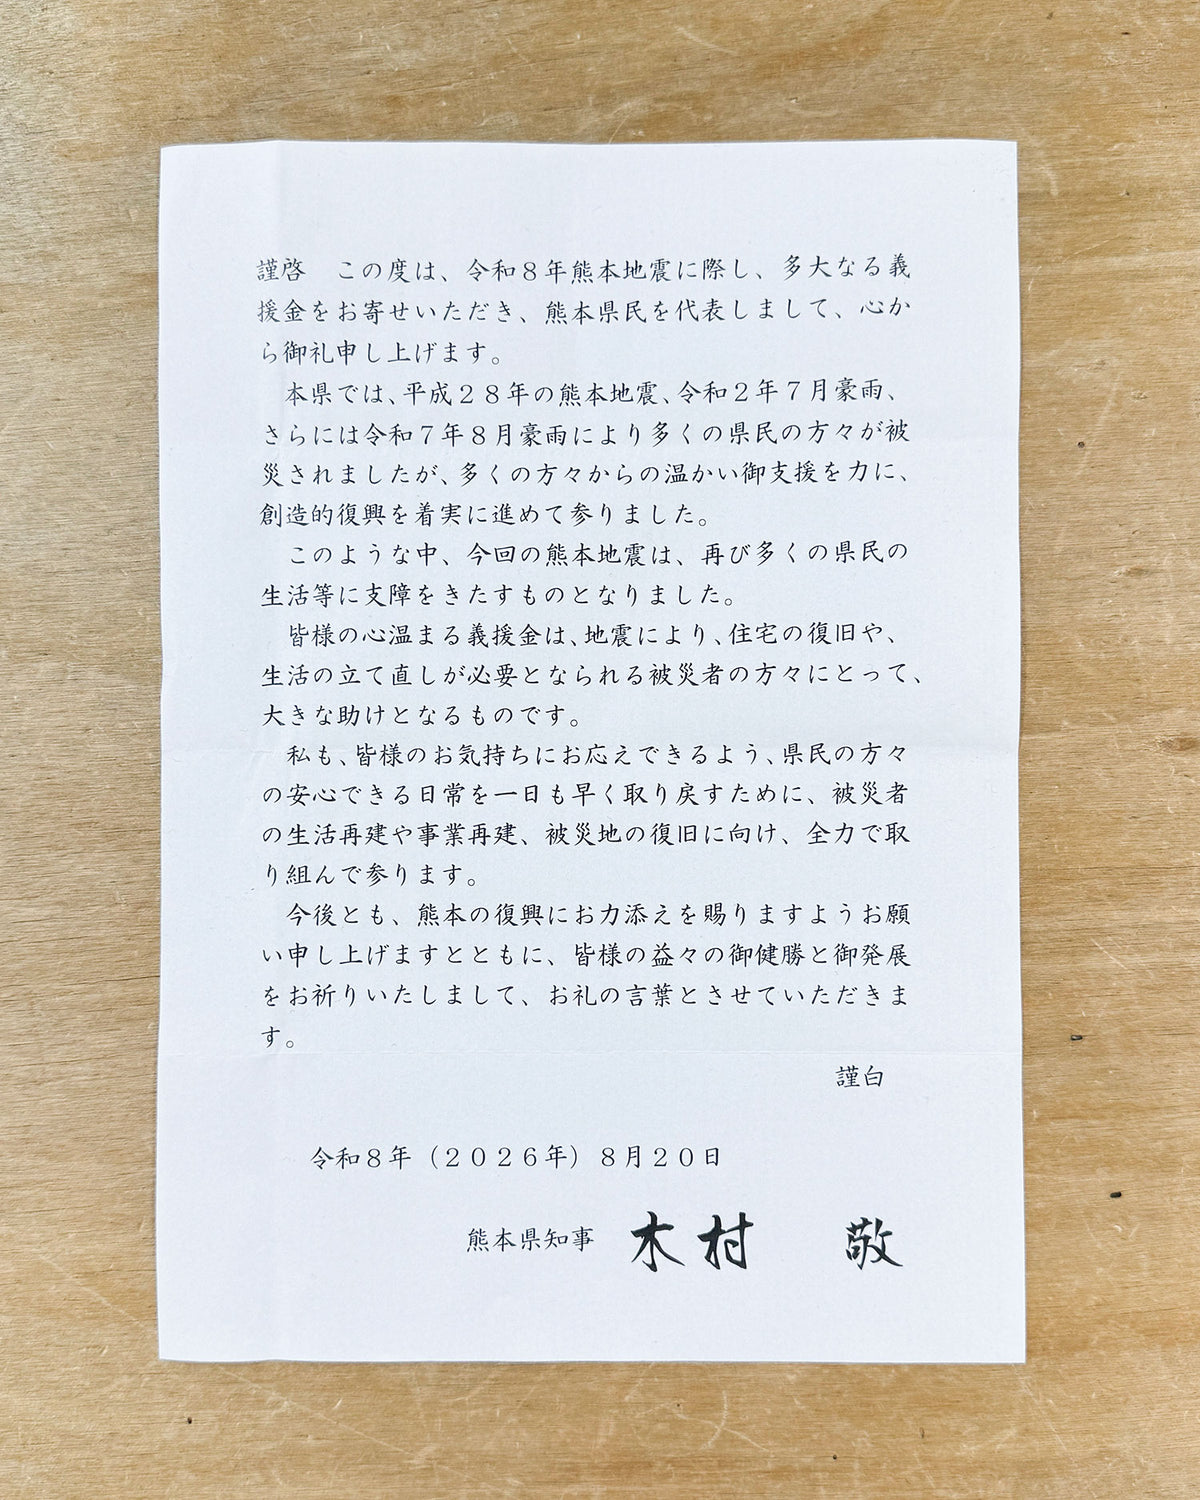 謹啓　この度は、令和８年熊本地震に際し、多大なる義
援金をお寄せいただき、熊本県民を代表しまして、心か
ら御礼申し上げます。
　本県では、平成２８年の熊本地震、令和２年７月豪雨、
さらには令和７年８月豪雨により多くの県民の方々が被
災されましたが、多くの方々からの温かい御支援を力に、
創造的復興を着実に進めて参りました。
　このような中、今回の熊本地震は、再び多くの県民の
生活等に支障をきたすものとなりました。
　皆様の心温まる義援金は、地震により、住宅の復旧や、
生活の立て直しが必要となられる被災者の方々にとって、
大きな助けとなるものです。
　私も、皆様のお気持ちにお応えできるよう、県民の方々
の安心できる日常を一日も早く取り戻すために、被災者
の生活再建や事業再建、被災地の復旧に向け、全力で取
り組んで参ります。
　今後とも、熊本の復興にお力添えを賜りますようお願
い申し上げますとともに、皆様の益々の御健勝と御発展
をお祈りいたしまして、お礼の言葉とさせていただきま
す。
謹白
令和８年（２０２６年）８月２０日
熊本県知事　木村　敬